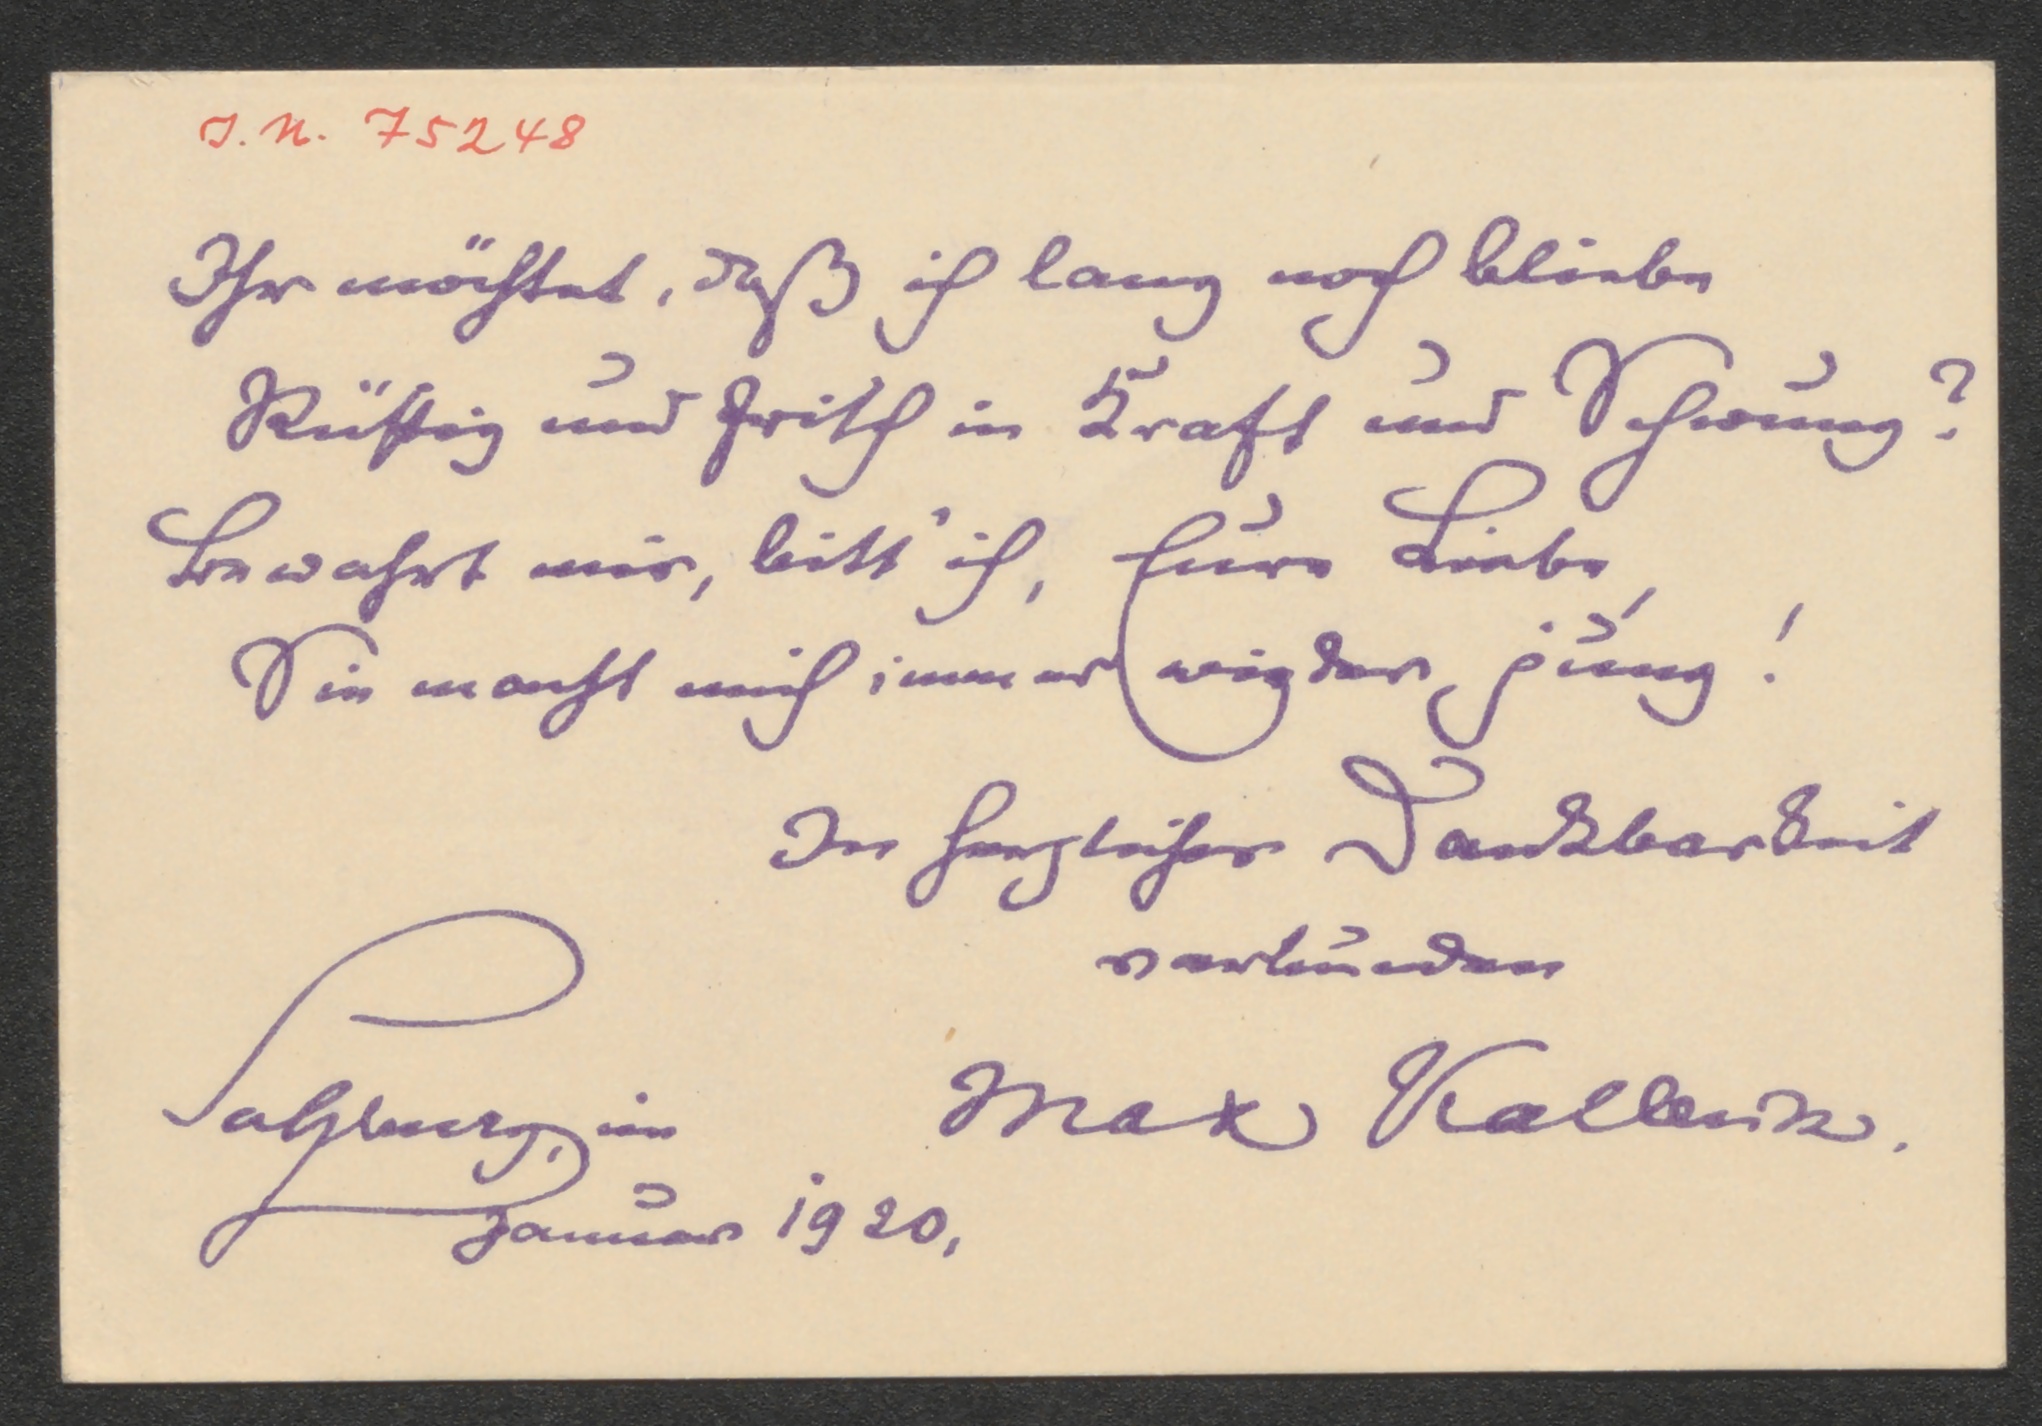 J. N. 75248
Ihr möchtet, daß ich lang noch bliebe
Rüstig und frisch in Kraft und Schwung?
Bewahrt mir, bitt' ich, Eure Liebe,
Sie macht mich immer wieder jung!
In herzlicher Dankbarkeit
verbunden
Max Kalbeck.
Salzburg, im
Januar 1920.